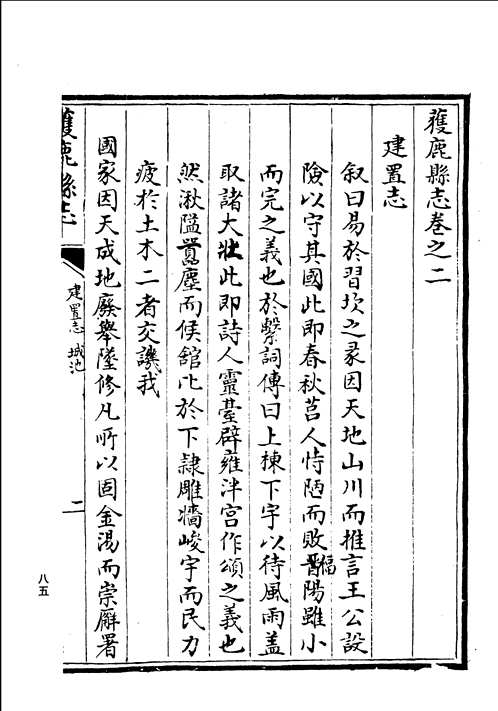 獲鹿縣志卷之二
建置志
叙曰易於習坎之彖因天地山川而推言王公設
險以守其國此即春秋莒人恃陋而敗晉陽雖小
福
而完之義也於繫詞傳曰上棟下宇以待風雨蓋
取諸大壯此即詩人靈臺辟雍泮宮作頌之義也
然湫隘囂塵而侯舘比於下隷雕牆峻宇而民力
疲於土木二者交譏我
國家因天成地廢舉墜修凡所以固金湯而崇廨署
獲鹿縣志
建置志 城池
二
八五